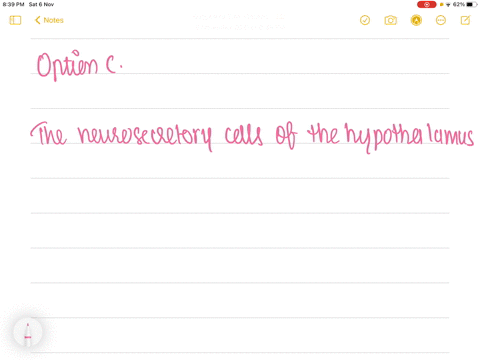 8:39 PM Sat 6 Nov
62%
Notes
Option C.
The neurosecretory cells of the hypothalamus